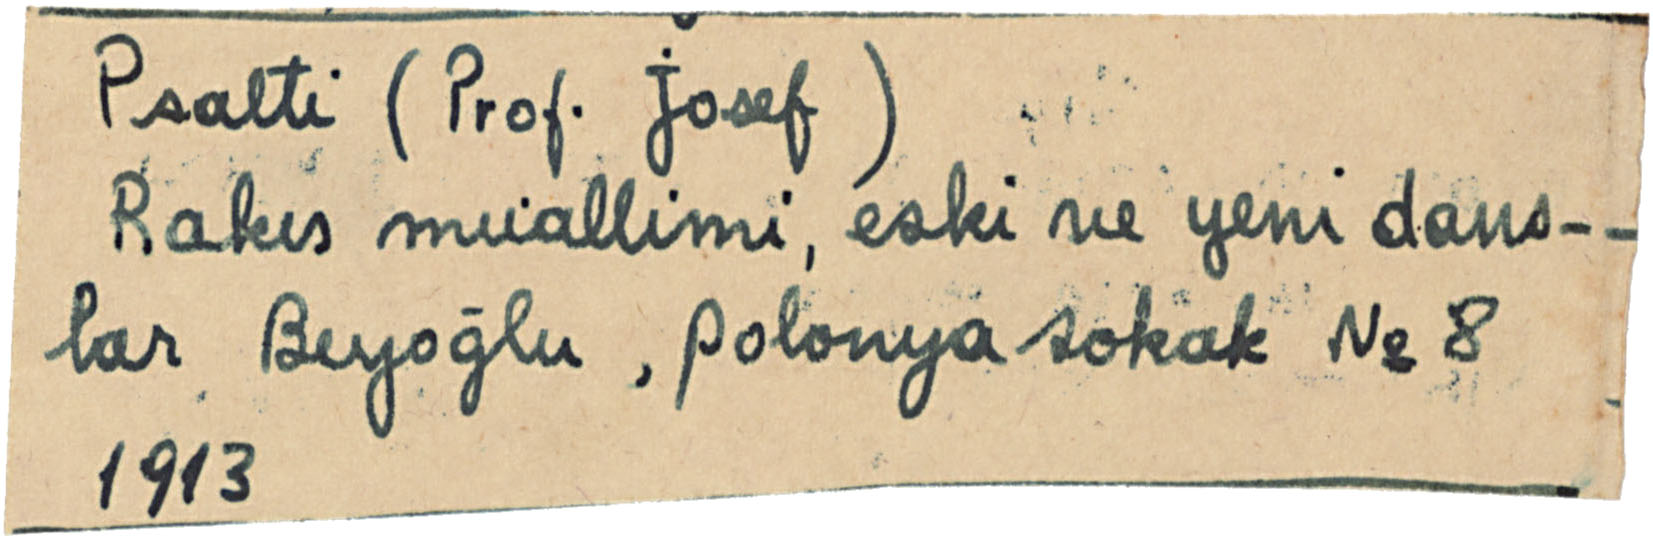 Psalti (Prof. Josef)
Rakıs muallimi, eski ve yeni dans--
lar Beyoğlu, Polonya sokak No 8
1913